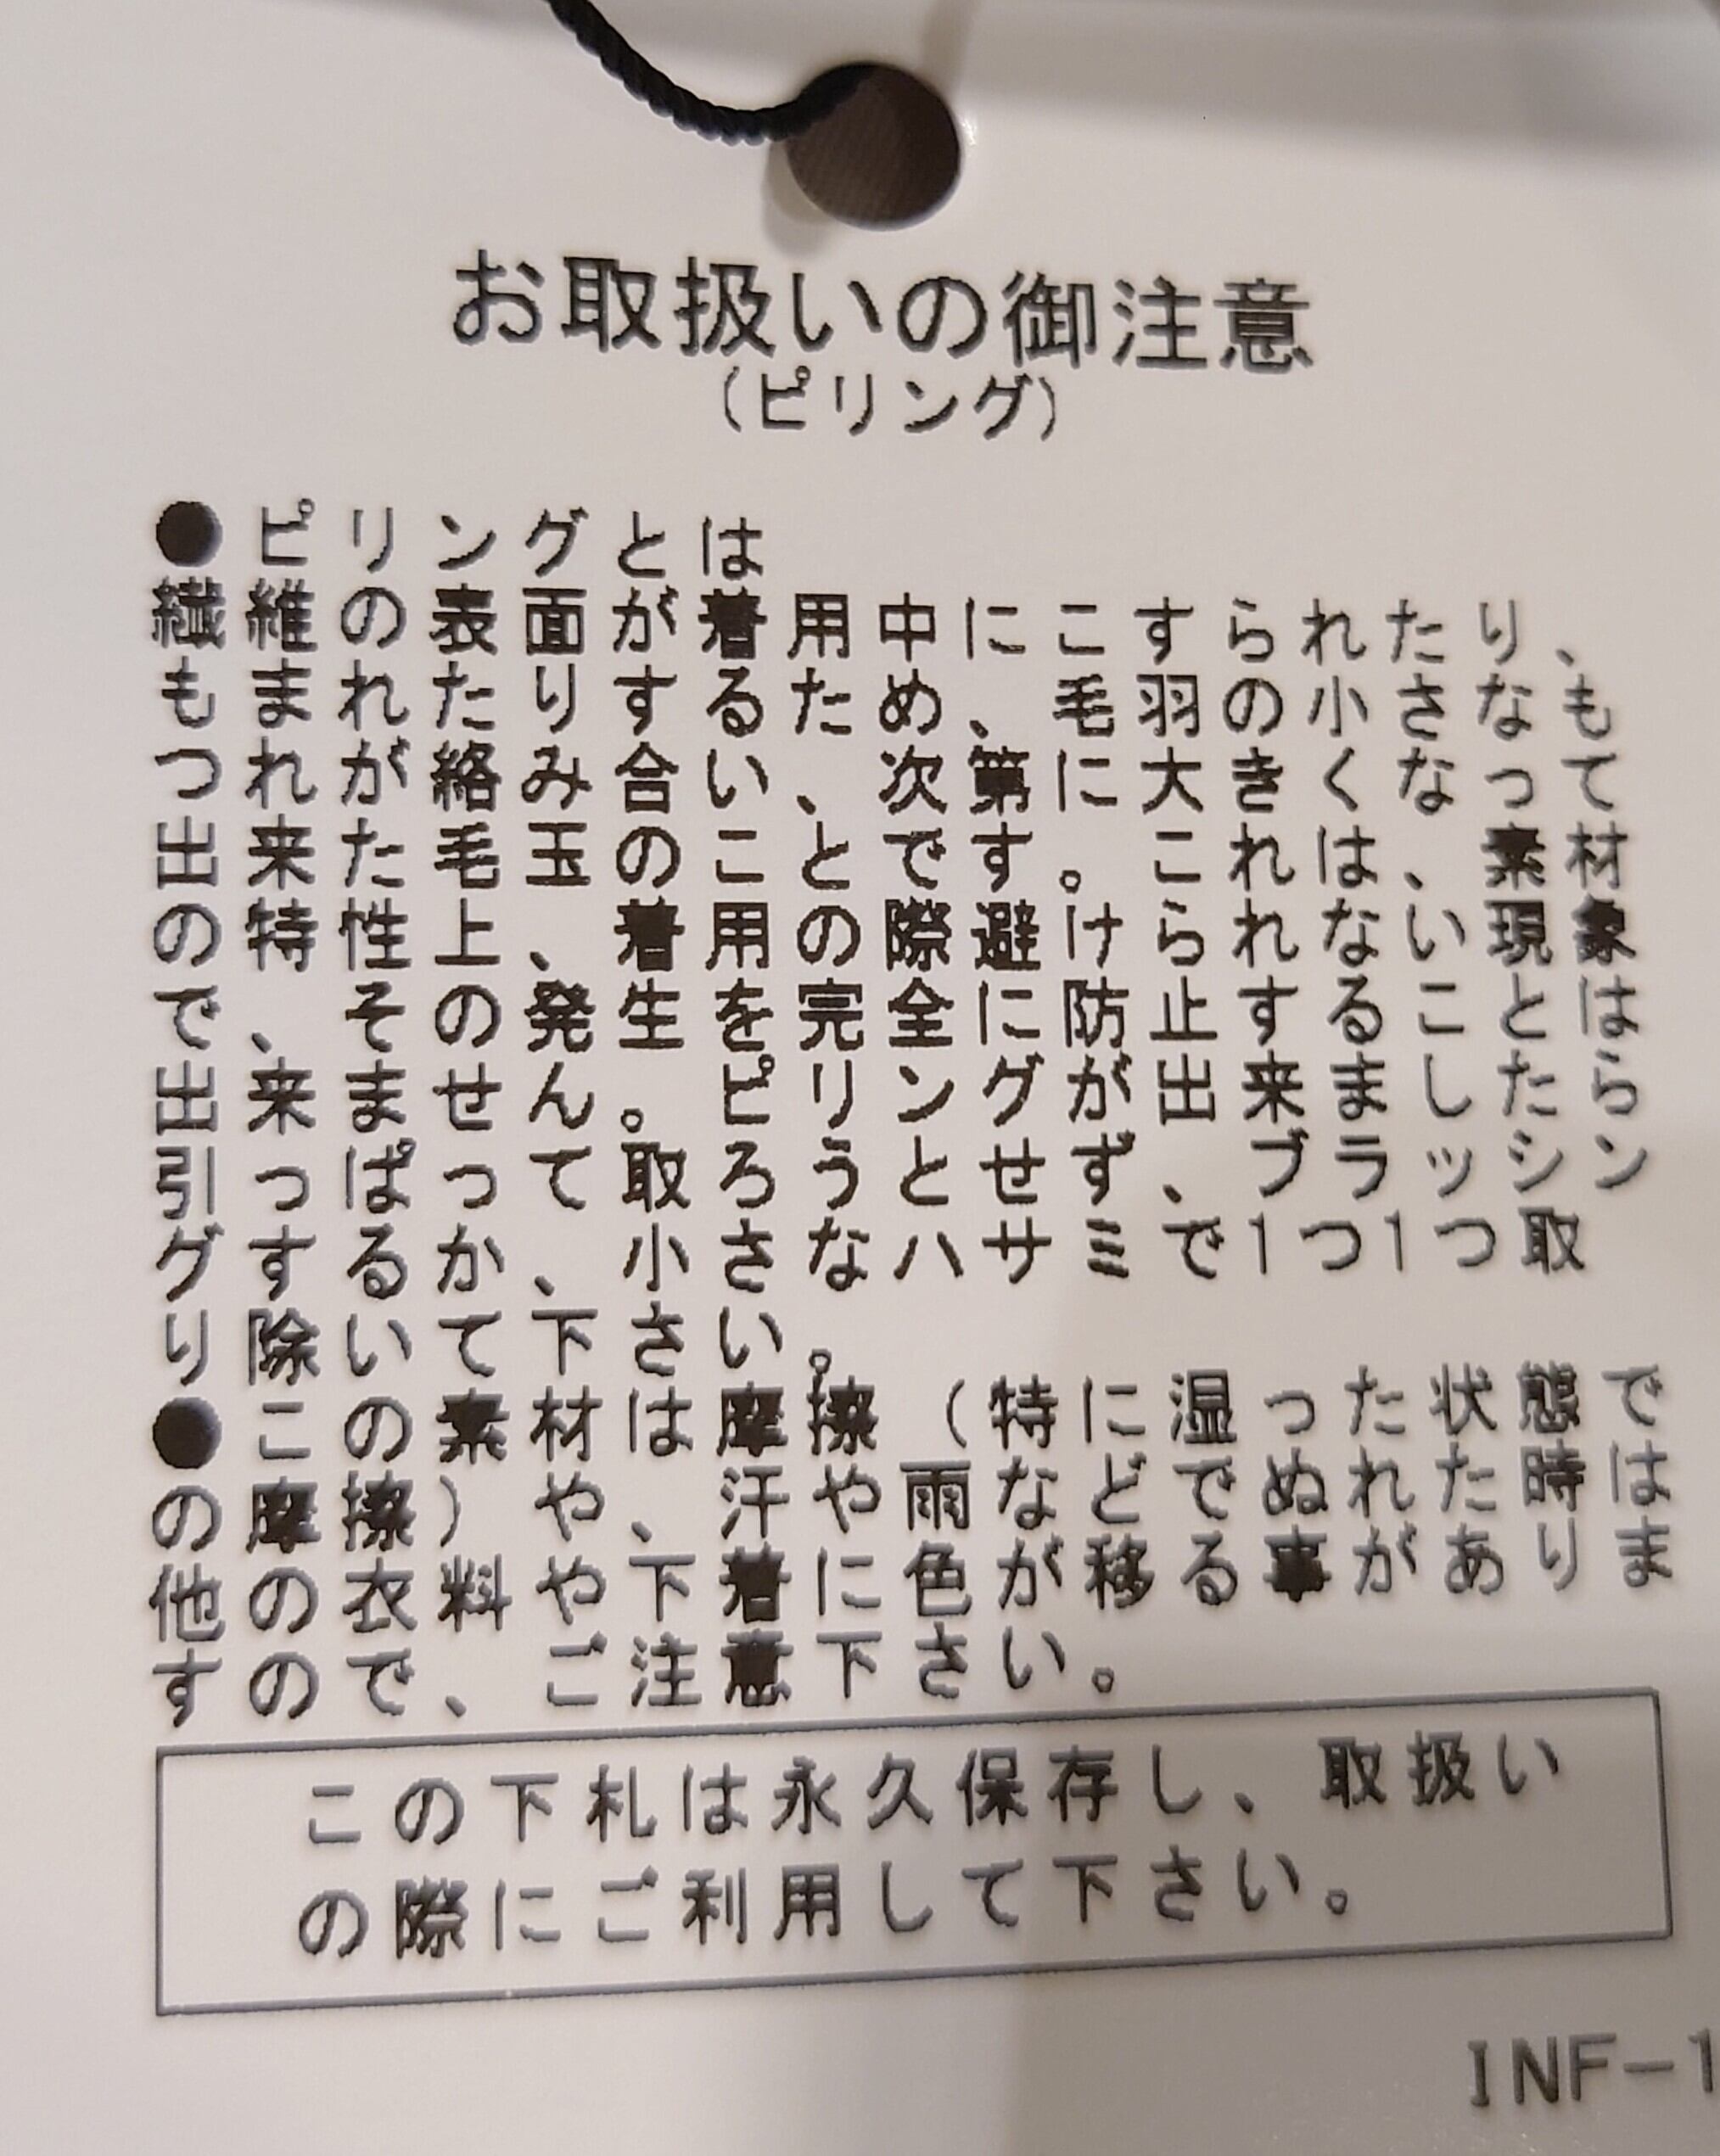 お取扱いの御注意
(ピリング)
●ピリングとは
繊維の表面が着用中にこすられたり、
もまれたりするため、毛羽の小さなも
つれが絡み合い、次第に大きくなって
出来た毛玉のことです。これは、素材
の特性上、着用の際避けられない現象
で、その発生を完全に防止することは
出来ません。ピリングが出来ましたら
引っぱって取ろうとせず、ブラッシン
グするか、小さなハサミで1つ1つ取
り除いて下さい。
●この素材は摩擦(特に湿った状態で
の摩擦)や、汗や雨などでぬれた時は
他の衣料や下着に色が移る事がありま
すので、ご注意下さい。
この下札は永久保存し、取扱い
の際にご利用して下さい。
INF-1